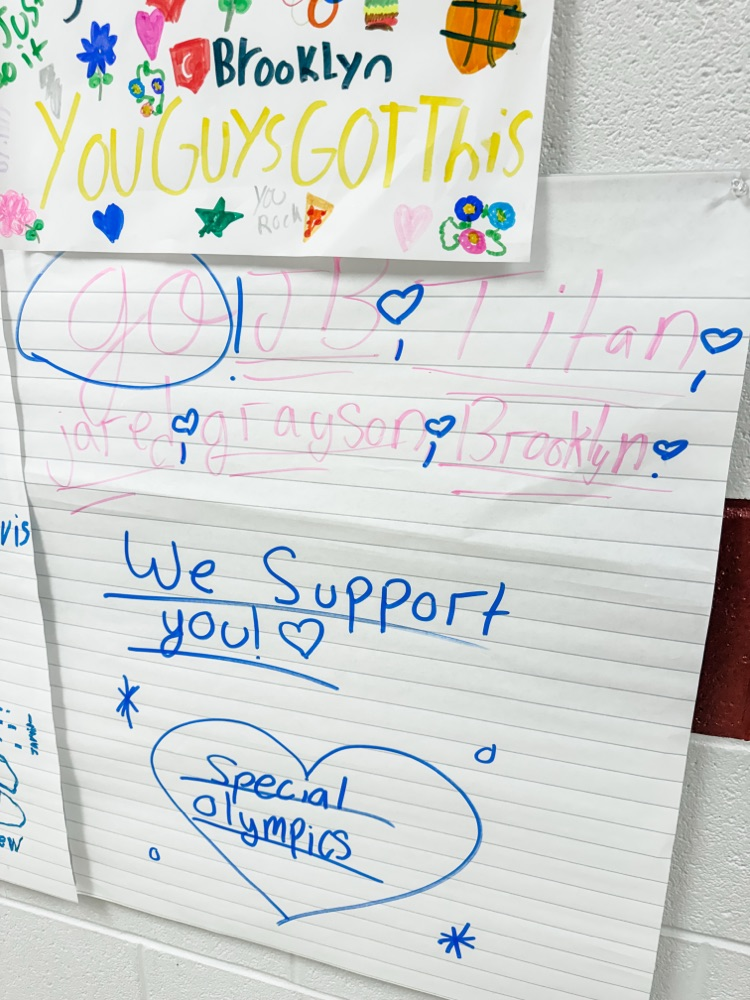 Just
Do it
Brooklyn
You Guys GOT This
You
Rock
go! JB, Titan,
jared, grayson, Brooklyn.
We Support
you!
Special
olympics
vis
ew